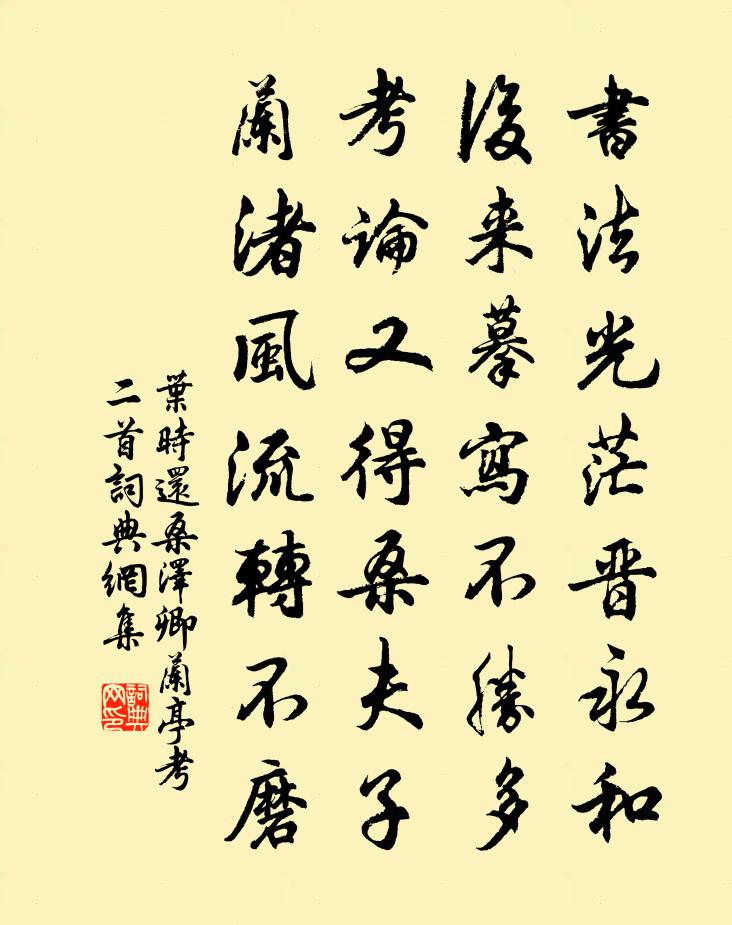 書法光茫晋永和
後来摹寫不勝多
考論又得桑夫子
蘭渚風流轉不磨
葉時還桑澤卿蘭亭考
二首詞典網集
詞典网印